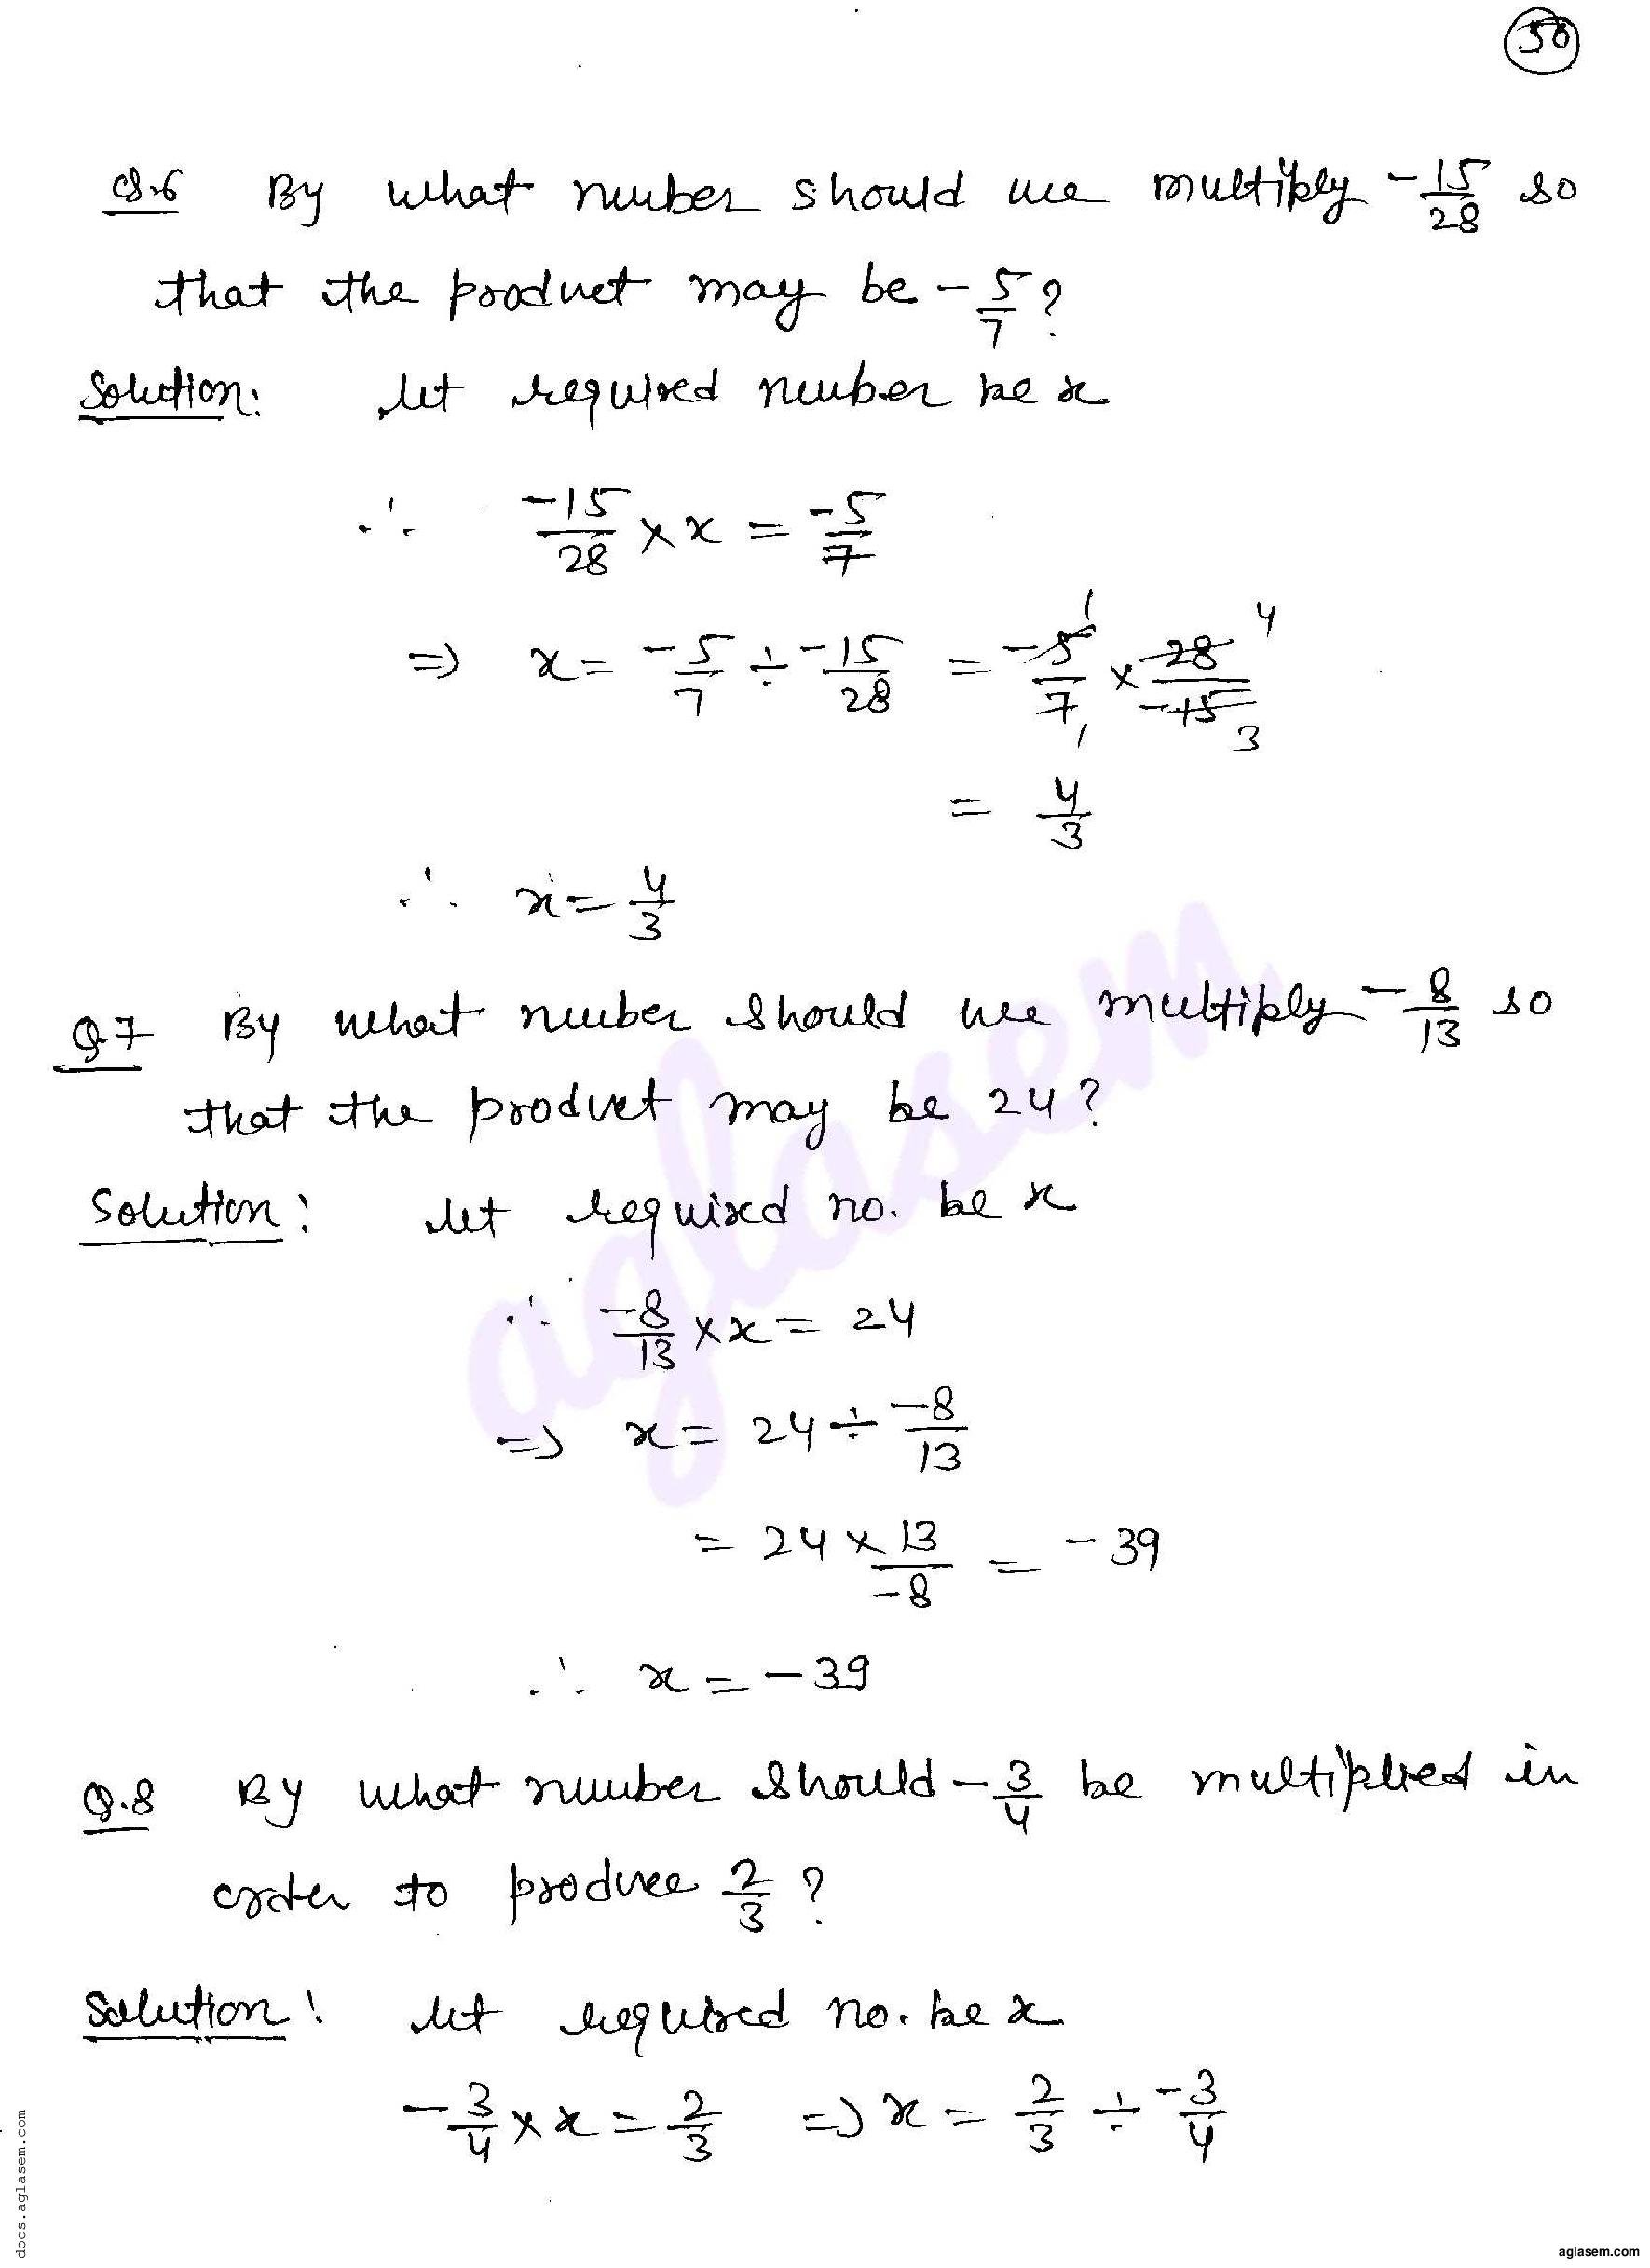 50
Q.6 By what number should we multiply -15/28 so
that the product may be -5/7?
Solution: Let required number be x
∴ -15/28 × x = -5/7
⇒ x = -5/7 ÷ -15/28 = -5/7 × 28/-15 1 4 1 3
= 4/3
∴ x = 4/3
Q.7 By what number should we multiply -8/13 so
that the product may be 24?
Solution: Let required no. be x
∴ -8/13 × x = 24
⇒ x = 24 ÷ -8/13
= 24 × 13/-8 = -39
∴ x = -39
Q.8 By what number should -3/4 be multiplied in
order to produce 2/3?
Solution: Let required no. be x
-3/4 × x = 2/3 ⇒ x = 2/3 ÷ -3/4
aglasem
docs.aglasem.com
aglasem.com